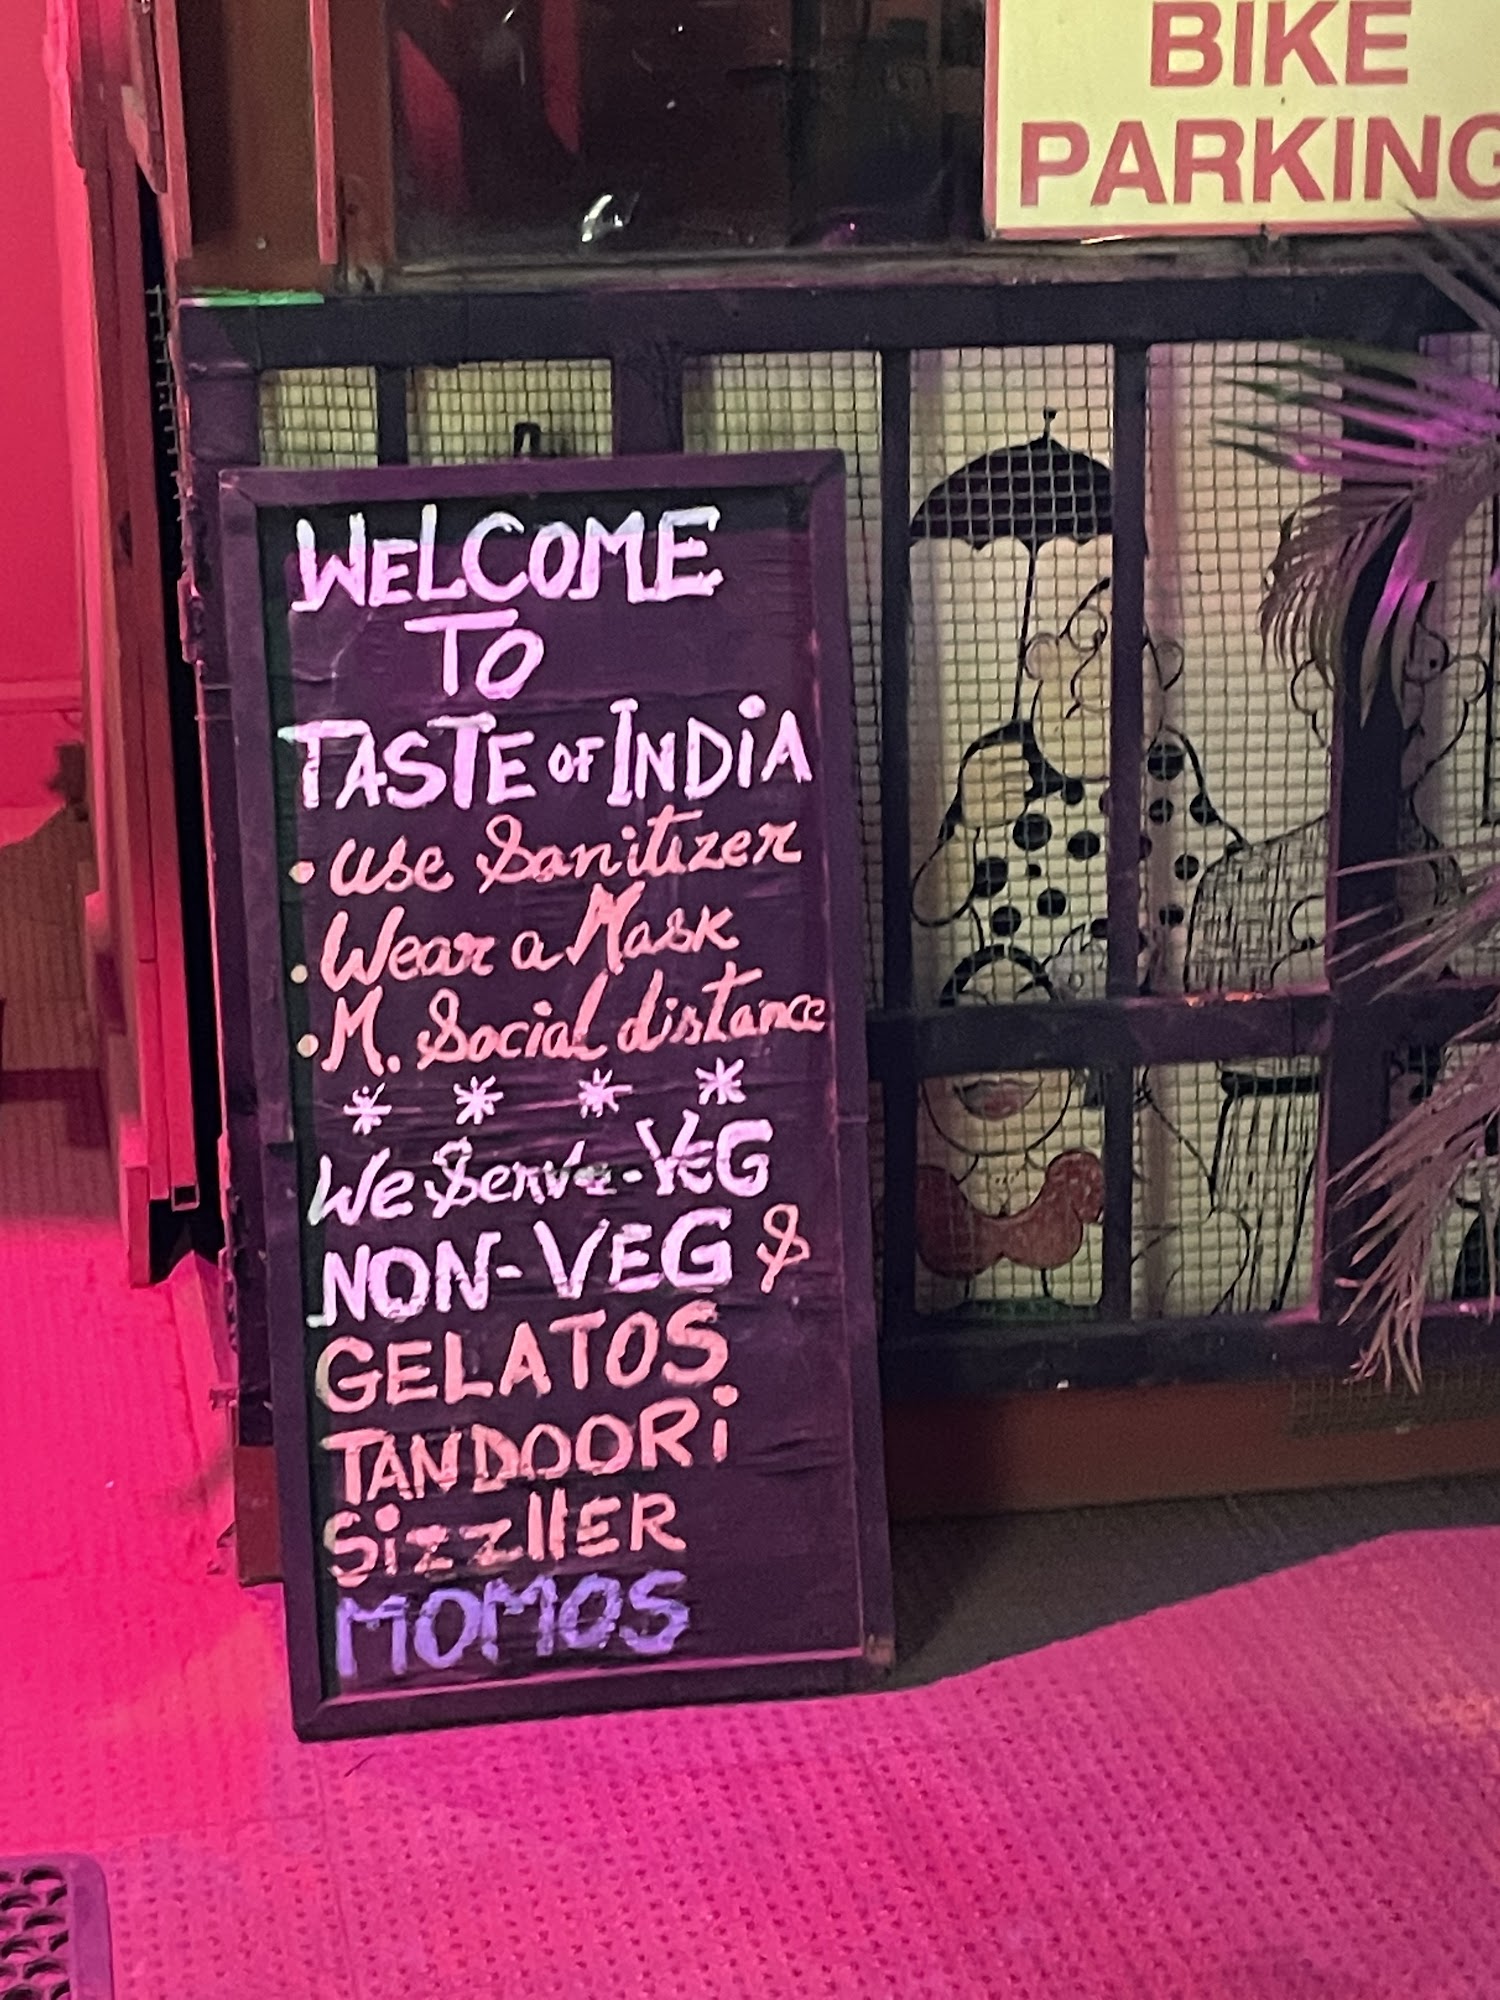 BIKE
PARKING
WELCOME
TO
TASTE OF INDiA
• Use Sanitizer
• Wear a Mask
• M. Social distance
* * * *
We Serve - VEG
NON-VEG &
GELATOS
TANDOORi
SizzllER
MOMOS